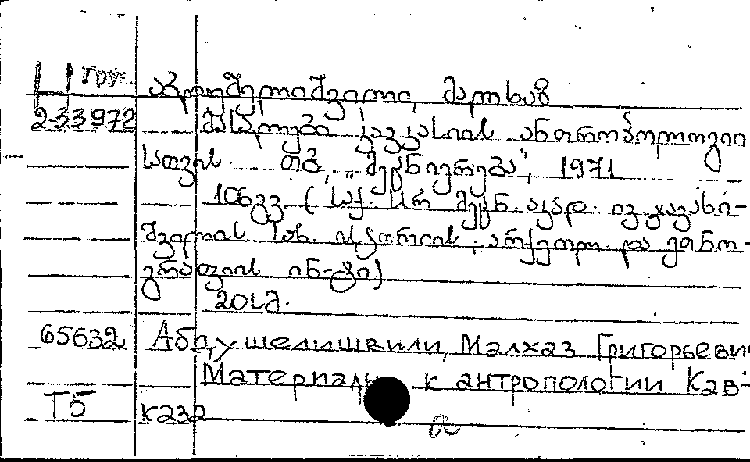 Н груз. აბდუშელიშვილი, მალხაზ
233972 მასალები კავკასიის ანთროპოლოგიი
სათვის. თბ., „მეცნიერება“, 1971
106გვ. (საქ. სსრ მეცნ. აკად. ივ. ჯავახი-
შვილის სახ. ისტორიის, არქეოლ. და ეთნო-
გრაფიის ინ-ტი)
20სმ.
65632 Абдушелишвили, Малхаз Григорьеви
Материалы к антропологии Кав-
Т5 каза